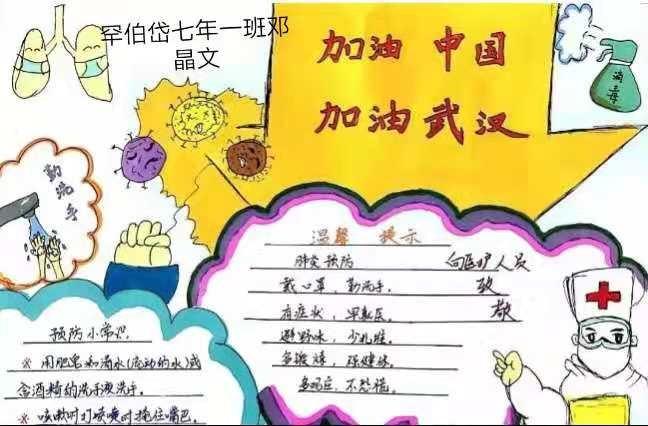 罕伯岱七年一班邓
晶文
加油 中国
加油武汉
消毒
勤洗手
温馨 提示
肺炎预防
戴口罩，勤洗手。
有症状，早就医。
避野味，少扎堆。
多锻炼，强健体。
不恐慌。
向医护人员
致
敬
预防小常识
※ 用肥皂和清水(流动的水)或
含酒精的洗手液洗手。
※ 咳嗽时打喷嚏时掩住嘴巴。